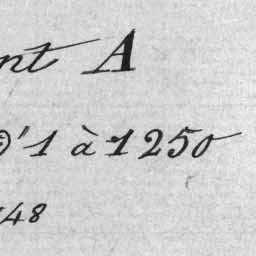 nt A
1 à 1250
48